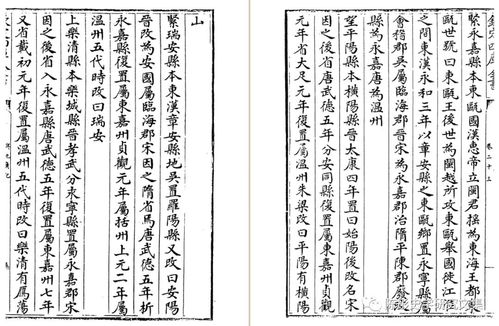 欽定四庫全書
卷二十五
緊永嘉縣本東甌國漢惠帝立閩君搖為東海王都東
甌世號曰東甌王後世為閩越所攻東甌舉國徙江
之間東漢永和三年以章安縣之東甌鄉置永寧縣
會指郡吳屬臨海郡晉宋為永嘉郡治隋平陳郡廢
縣為永嘉唐為温州
望平陽縣本横陽縣晉太康四年置曰始陽後改名宋
因之後省唐武德五年分安同縣復置屬東嘉州貞觀
元年省大足元年復置屬温州朱梁改曰平陽有横陽
山
緊瑞安縣本東漢章安縣地吳置羅陽縣又改曰安陽
晉改為安固屬臨海郡宋因之隋省焉唐武德五年析
永嘉縣復置屬東嘉州貞觀元年屬括州上元二年屬
温州五代時改曰瑞安
上樂清縣本樂城縣晉孝武分永寧縣置屬永嘉郡宋
因之後省入永嘉縣唐武德五年復置屬東嘉州七年
又省載初元年復置屬温州五代時改曰樂清有鴈蕩